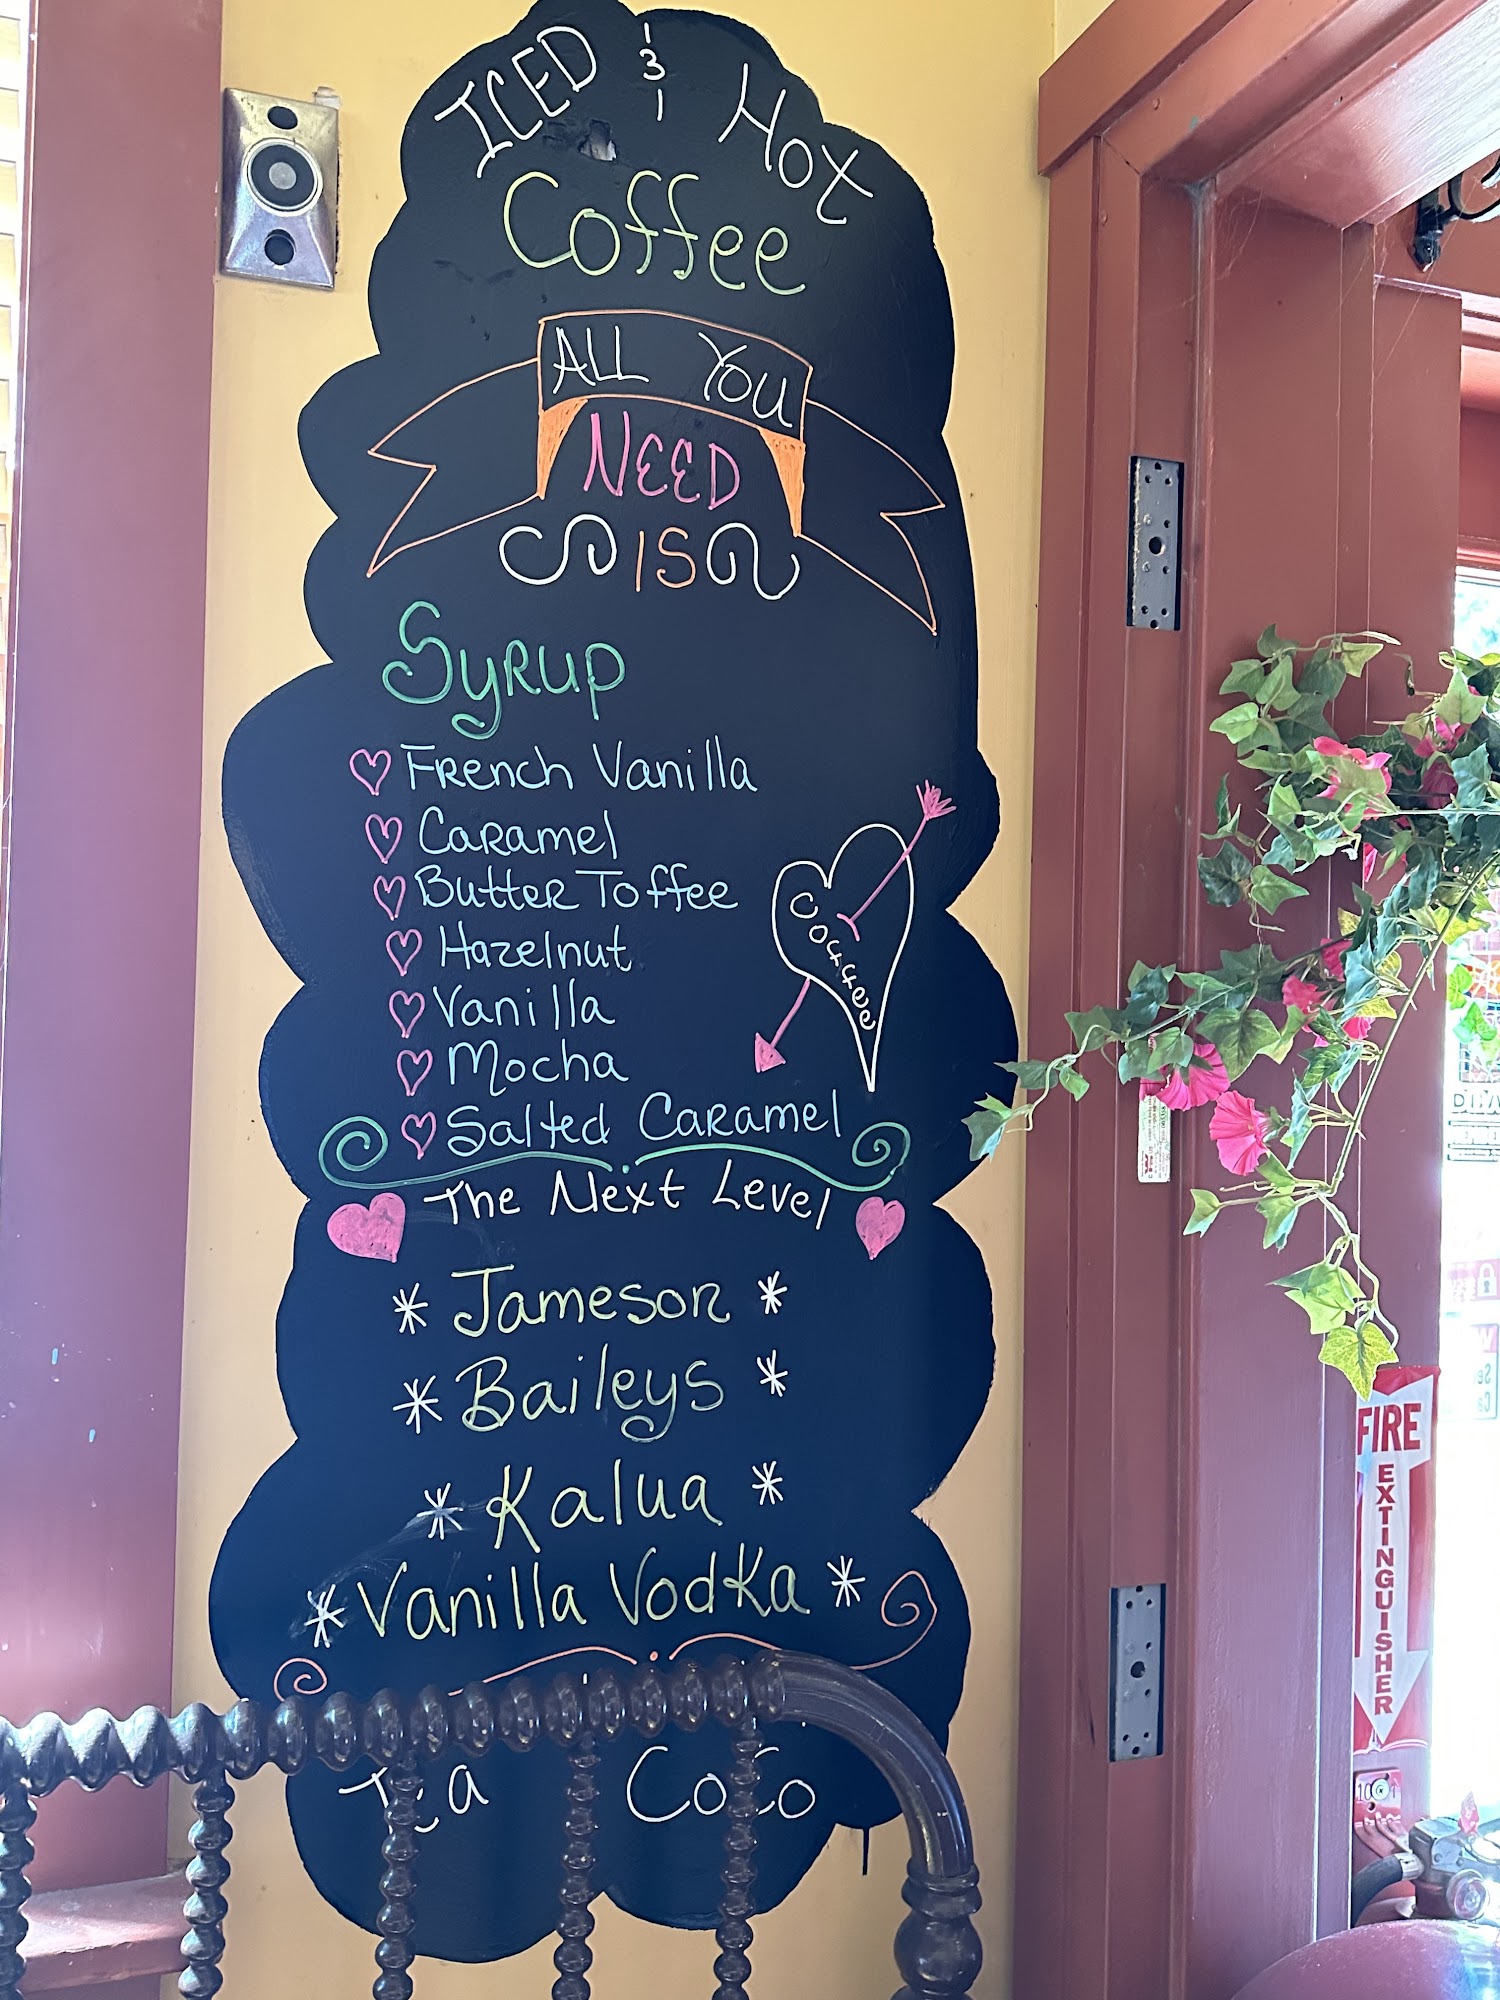 ICED & HOT
Coffee
ALL YOU
NEED
IS
Syrup
French Vanilla
Caramel
Butter Toffee
Hazelnut
Vanilla
Mocha
Salted Caramel
Coffee
The Next Level
* Jameson *
* Baileys *
* Kalua *
* Vanilla Vodka *
Tea CoCo
FIRE
EXTINGUISHER